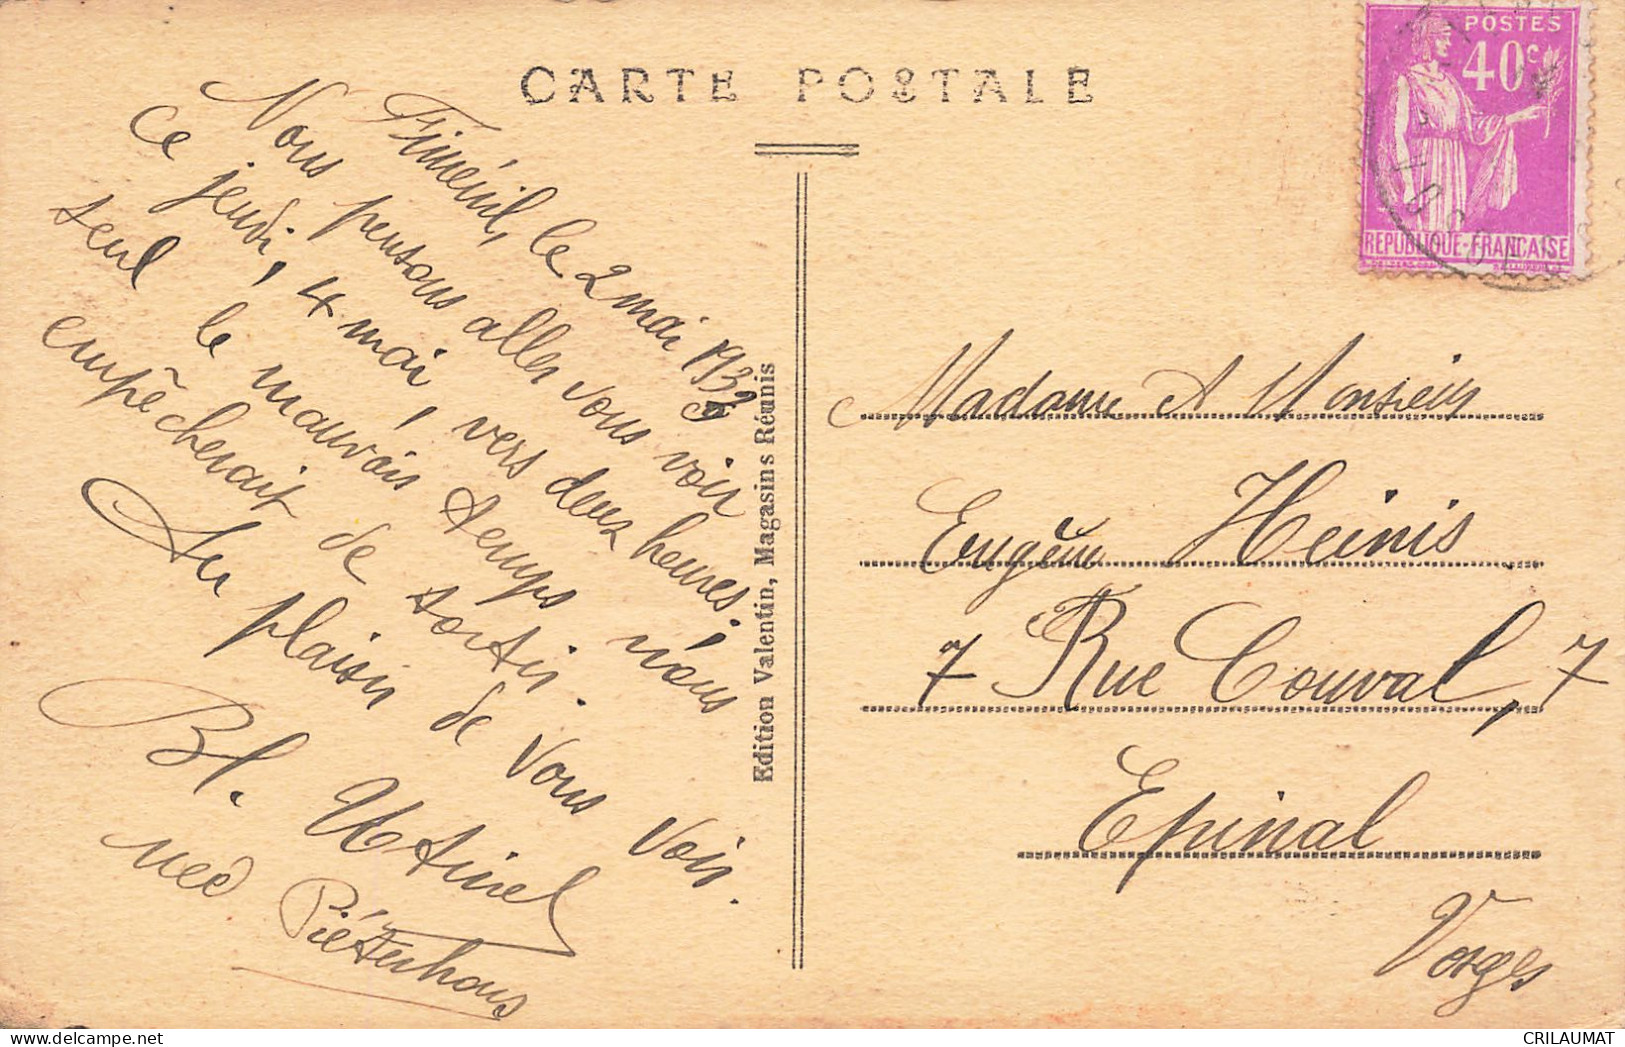 CARTE POSTALE
POSTES
40c
REPUBLIQUE-FRANÇAISE
Fiménil, le 2 mai 1933
Nous pensons aller vous voir
ce jeudi, 4 mai, vers deux heures;
seul le mauvais temps nous
empêcherait de sortir.
Au plaisir de vous voir.
Bl.
née
Edition Valentin, Magasins Réunis
Madame et Monsieur
Eugène Heinis
7 Rue Couval, 7
Epinal
Vosges
CRILAUMAT